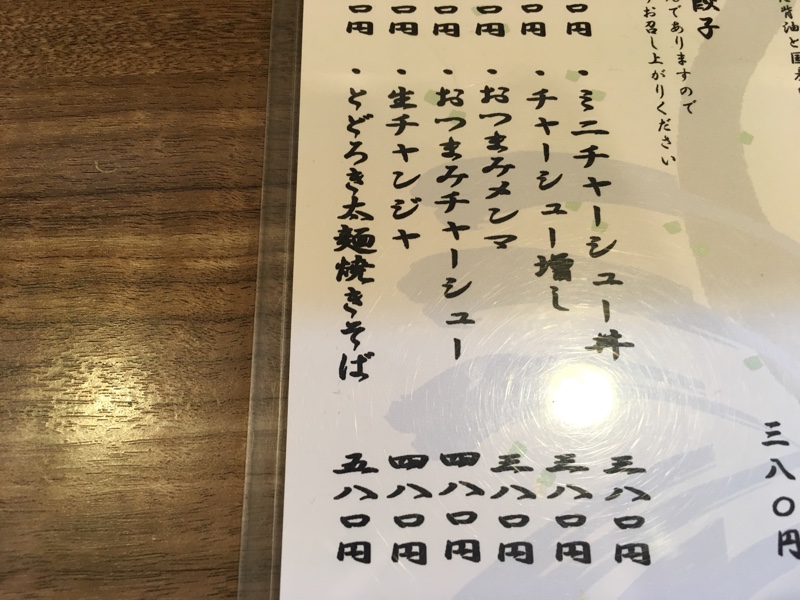 餃子
でありますので
お召し上がりください
三八〇円
・ミニチャーシュー丼 三八〇円
・チャーシュー増し 三八〇円
・おつまみメンマ 三八〇円
・おつまみチャーシュー 四八〇円
・生チャンジャ 四八〇円
・とどろき太麺焼きそば 五八〇円
〇円
〇円
〇円
〇円
〇円
〇円